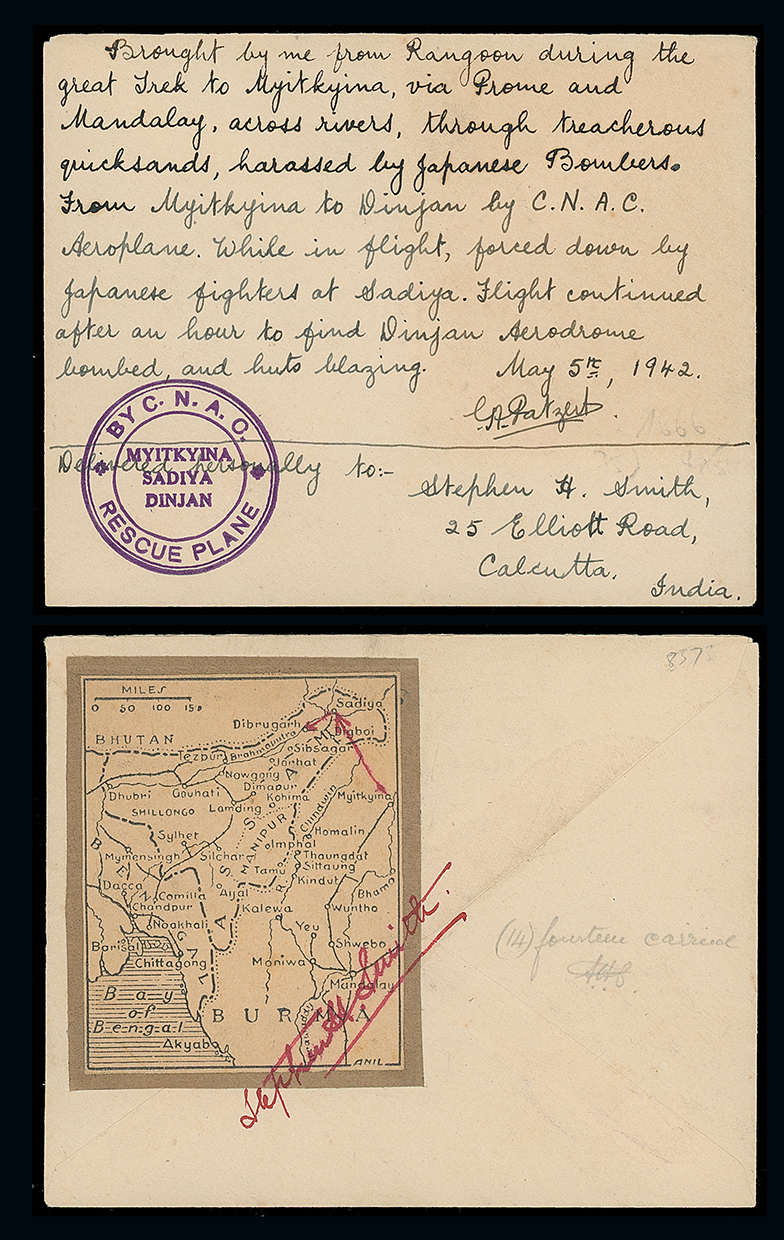 Brought by me from Rangoon during the
great Trek to Myitkyina, via Prome and
Mandalay, across rivers, through treacherous
quicksands, harassed by Japanese Bombers.
From Myitkyina to Dinjan by C. N. A. C.
Aeroplane. While in flight, forced down by
Japanese fighters at Sadiya. Flight continued
after an hour to find Dinjan Aerodrome
bombed, and huts blazing. May 5th, 1942.
C.A. Patzert.
BY C. N. A. C.
MYITKYINA
SADIYA
DINJAN
RESCUE PLANE
Delivered personally to:-
Stephen H. Smith,
25 Elliott Road,
Calcutta.
India.
8373
MILES
0 50 100 150
Sadiya
Dibrugarh
Digboi
BHUTAN
Tezpur
Brahmaputra
Sibsagar
Jorhat
Nowgong
Dimapur
Dhubri
Gauhati
Kohima
Myitkyina
Lamding
SHILLONGO
Chindwin
ASSAM
MANIPUR
Homalin
Sylhet
Imphal
Mymensingh
Silchar
Thaungdat
Tamu
Sittaung
Kindut
Bhamo
Dacca
Comilla
Aijal
Chandpur
Kalewa
Wuntho
Noakhali
Yeu
Barisal
Shwebo
Chittagong
Moniwa
Mandalay
BENGAL
Bay
of
Bengal
BURMA
Akyab
ANIL
Stephen H. Smith.
(14) fourteen carried